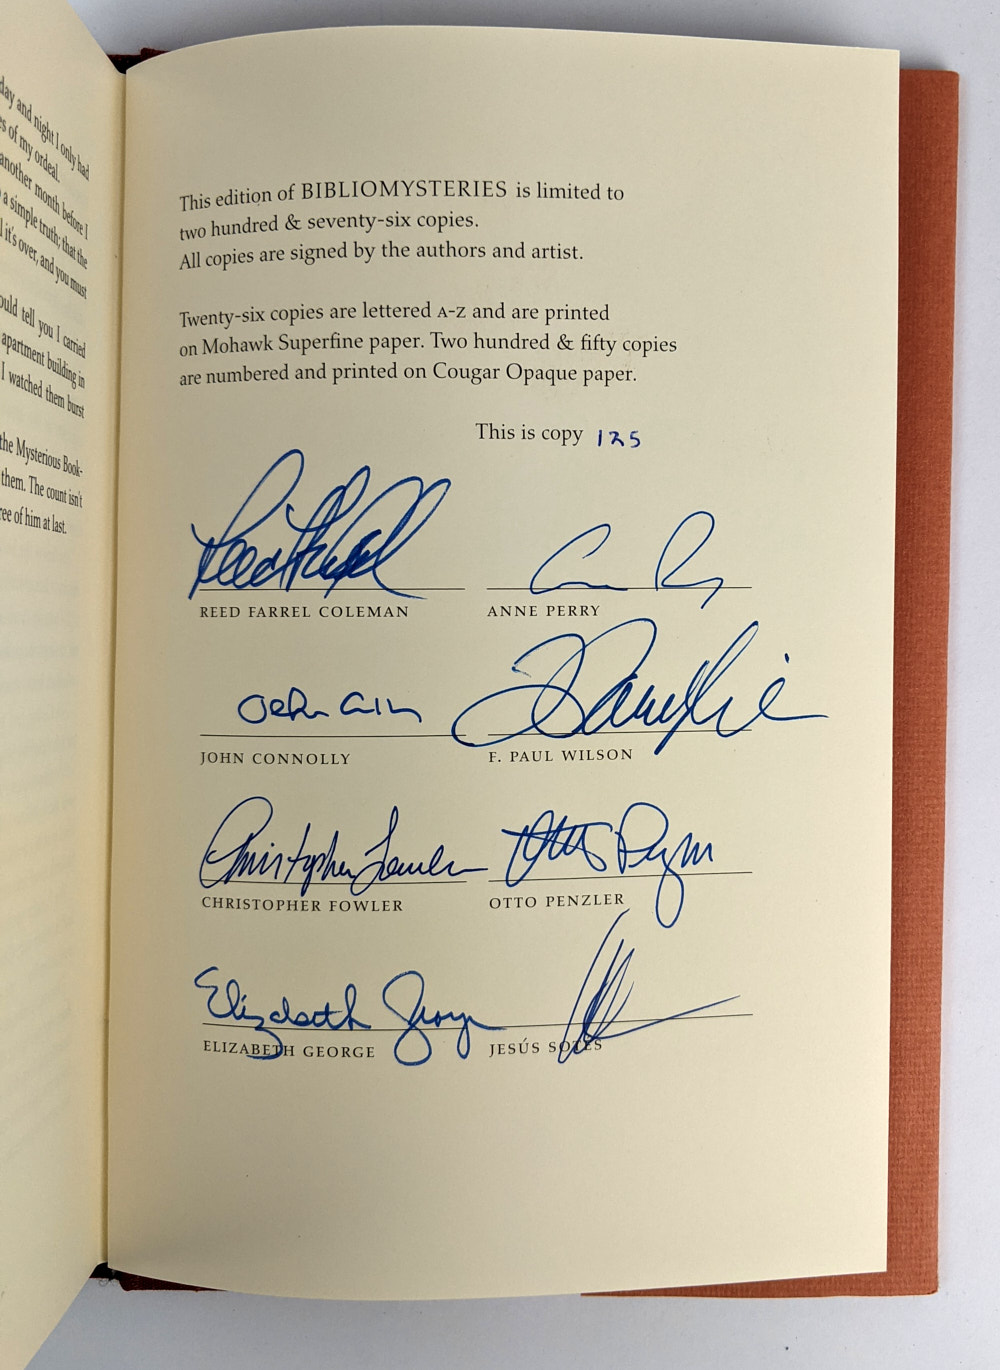 day and night I only had
es of my ordeal.
another month before I
a simple truth; that the
l it's over, and you must
ould tell you I carried
apartment building in
I watched them burst
the Mysterious Book-
them. The count isn't
ree of him at last.
This edition of BIBLIOMYSTERIES is limited to
two hundred & seventy-six copies.
All copies are signed by the authors and artist.
Twenty-six copies are lettered A-Z and are printed
on Mohawk Superfine paper. Two hundred & fifty copies
are numbered and printed on Cougar Opaque paper.
This is copy 125
REED FARREL COLEMAN
ANNE PERRY
JOHN CONNOLLY
F. PAUL WILSON
Christopher Fowler
CHRISTOPHER FOWLER
OTTO PENZLER
Elizabeth George
ELIZABETH GEORGE
JESÚS SOTÉS